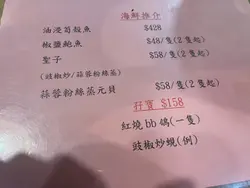 海鮮推介
油浸筍殼魚 $428
椒鹽鮑魚 $48/隻(2隻起)
聖子 $58/隻(2隻起)
(豉椒炒/蒜蓉粉絲蒸)
蒜蓉粉絲蒸元貝 $58/隻(2隻起)
孖寶 $158
紅燒bb鴿(一隻)
豉椒炒蜆(例)